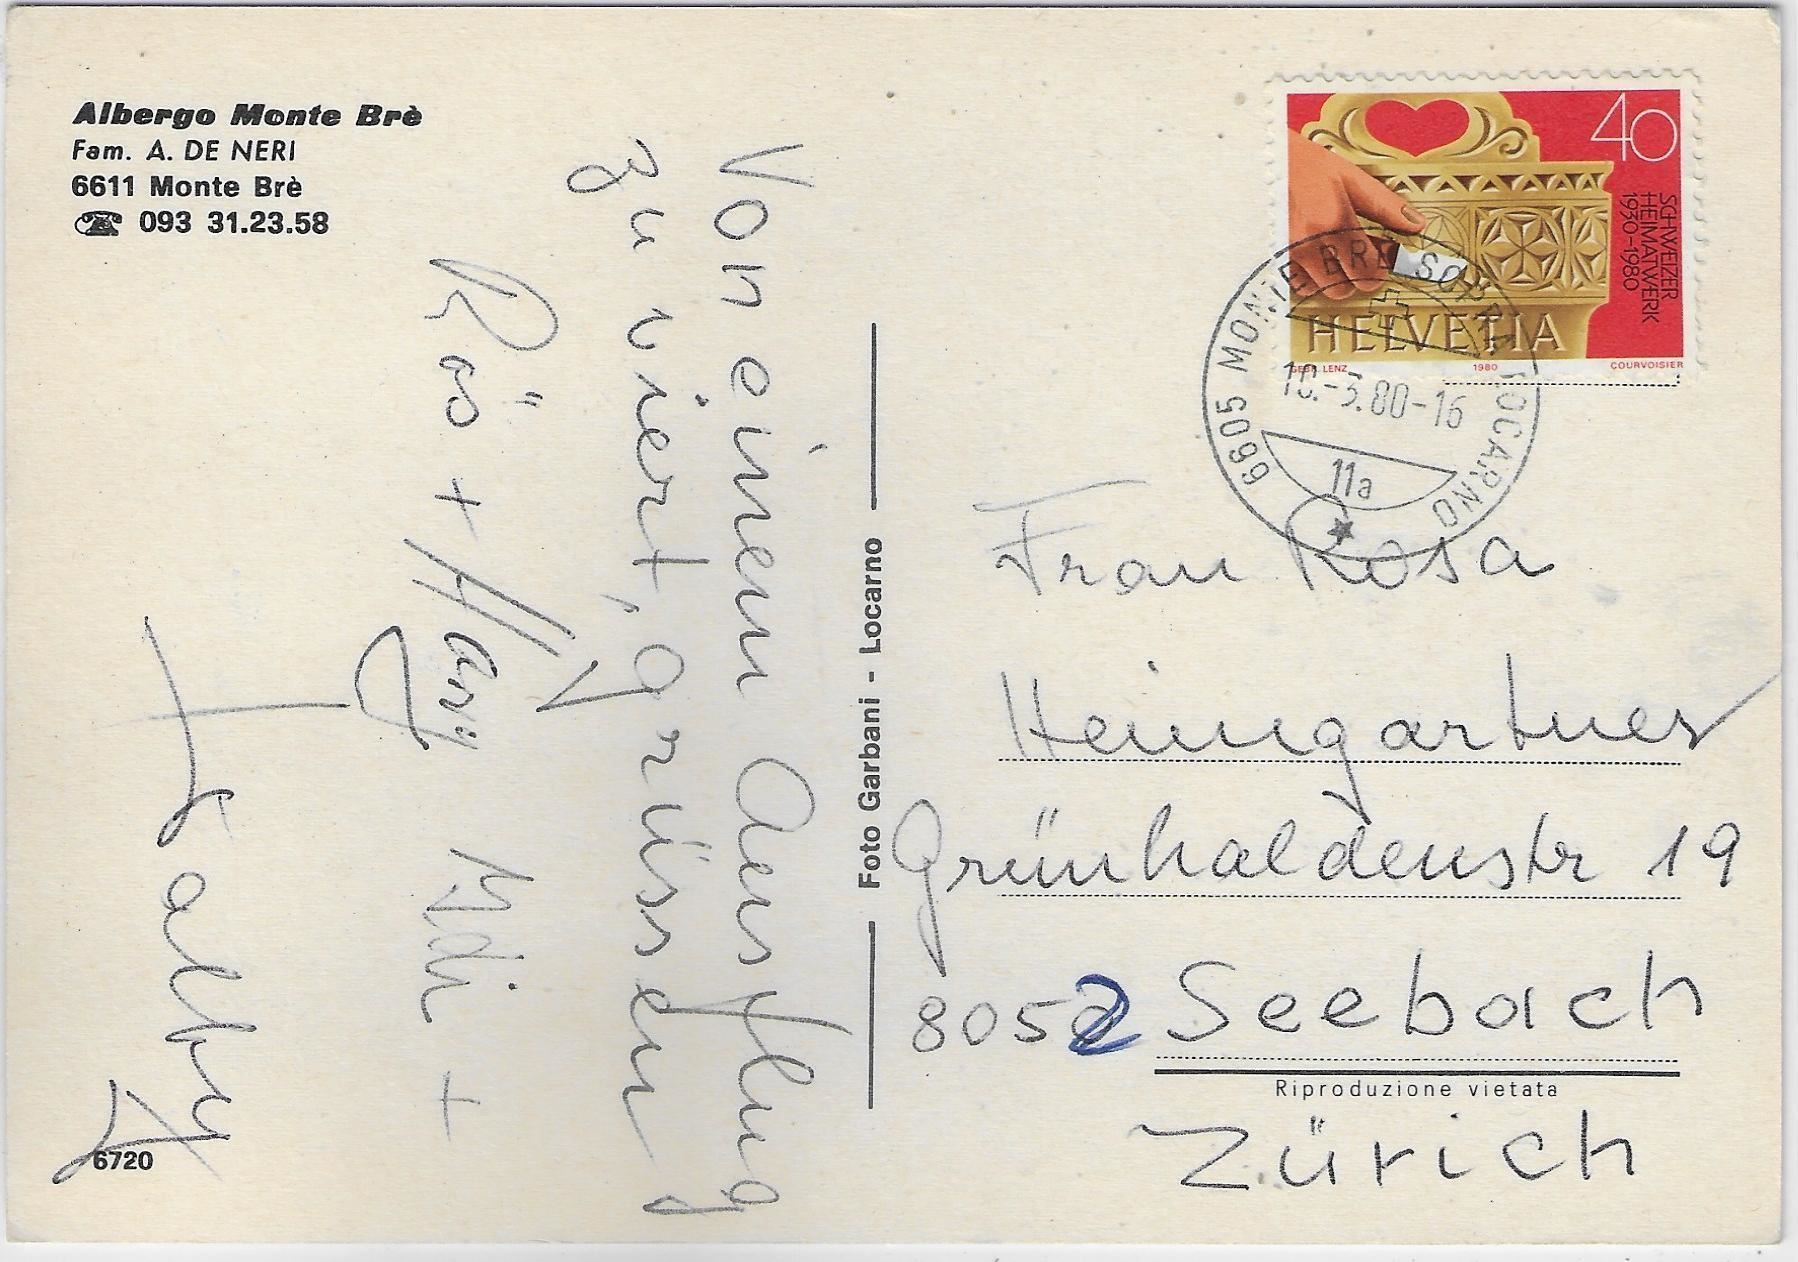 Albergo Monte Brè
Fam. A. DE NERI
6611 Monte Brè
☎ 093 31.23.58
Von einem Ausflug
zu viert, grüssen
Rös + Hany Mädi +
6720
Foto Garbani - Locarno
40
SCHWEIZER
HEIMATWERK
1930-1980
HELVETIA
GEBR. LENZ 1980 COURVOISIER
6605 MONTE BRE SOPRA LOCARNO
10.-3.80-16
11a
Frau Rosa
Heimgartner
Grünhaldenstr 19
8052 Seebach
Riproduzione vietata
Zürich